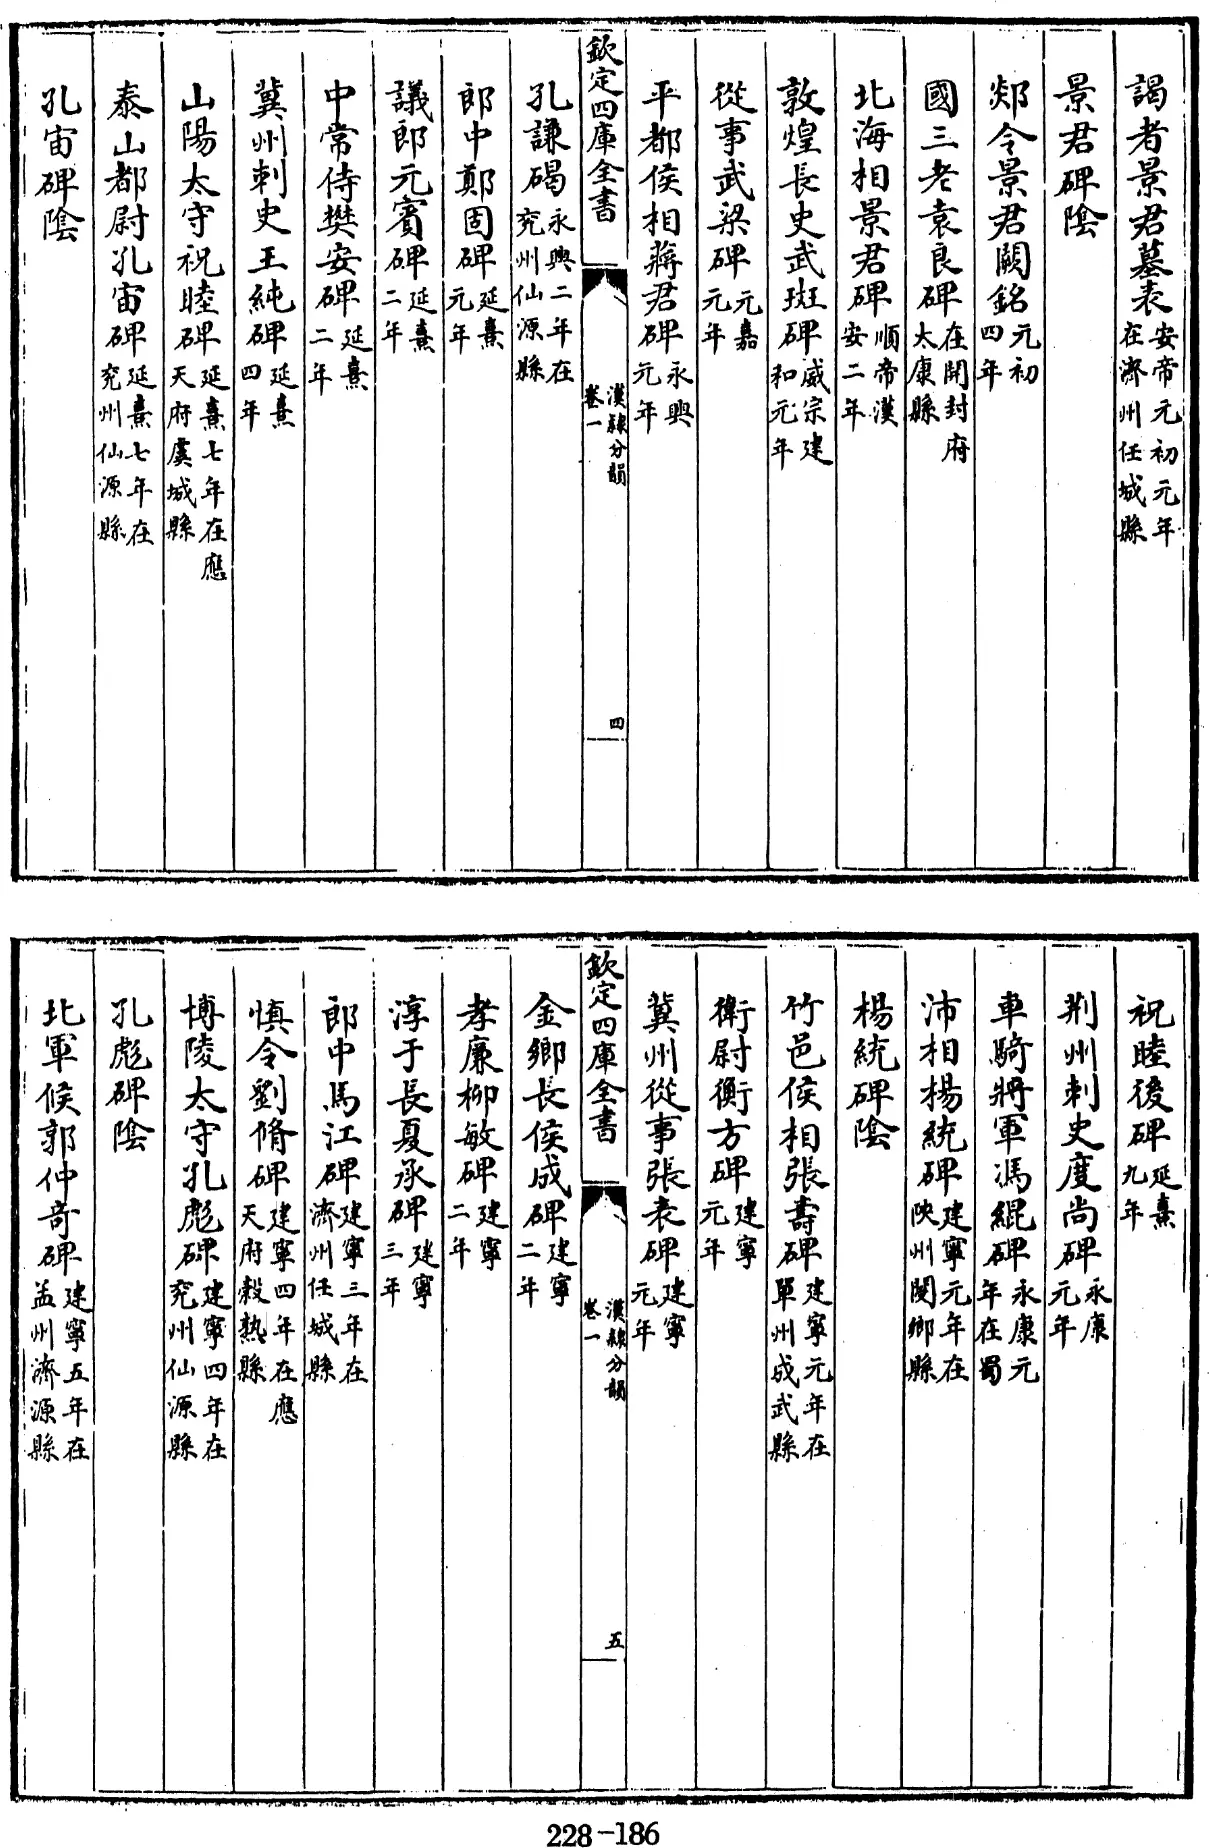 謁者景君墓表安帝元初元年在濟州任城縣
景君碑陰
郯令景君闕銘元初四年
國三老袁良碑在開封府太康縣
北海相景君碑順帝漢安二年
敦煌長史武斑碑威宗建和元年
從事武梁碑元嘉元年
平都侯相蔣君碑永興元年
欽定四庫全書
漢隸分韻
卷一
四
孔謙碣永興二年在兖州仙源縣
郎中鄭固碑延熹元年
議郎元賓碑延熹二年
中常侍樊安碑延熹二年
冀州刺史王純碑延熹四年
山陽太守祝睦碑延熹七年在應天府虞城縣
泰山都尉孔宙碑延熹七年在兖州仙源縣
孔宙碑陰
祝睦後碑延熹九年
荆州刺史度尚碑永康元年
車騎將軍馮緄碑永康元年在蜀
沛相楊統碑建寧元年在陜州閿鄉縣
楊統碑陰
竹邑侯相張壽碑建寧元年在單州成武縣
衛尉衡方碑建寧元年
冀州從事張表碑建寧元年
欽定四庫全書
漢隸分韻
卷一
五
金鄉長侯成碑建寧二年
孝廉柳敏碑建寧二年
淳于長夏承碑建寧三年
郎中馬江碑建寧三年在濟州任城縣
慎令劉脩碑建寧四年在應天府穀熟縣
博陵太守孔彪碑建寧四年在兖州仙源縣
孔彪碑陰
北軍候郭仲奇碑建寧五年在孟州濟源縣
228-186